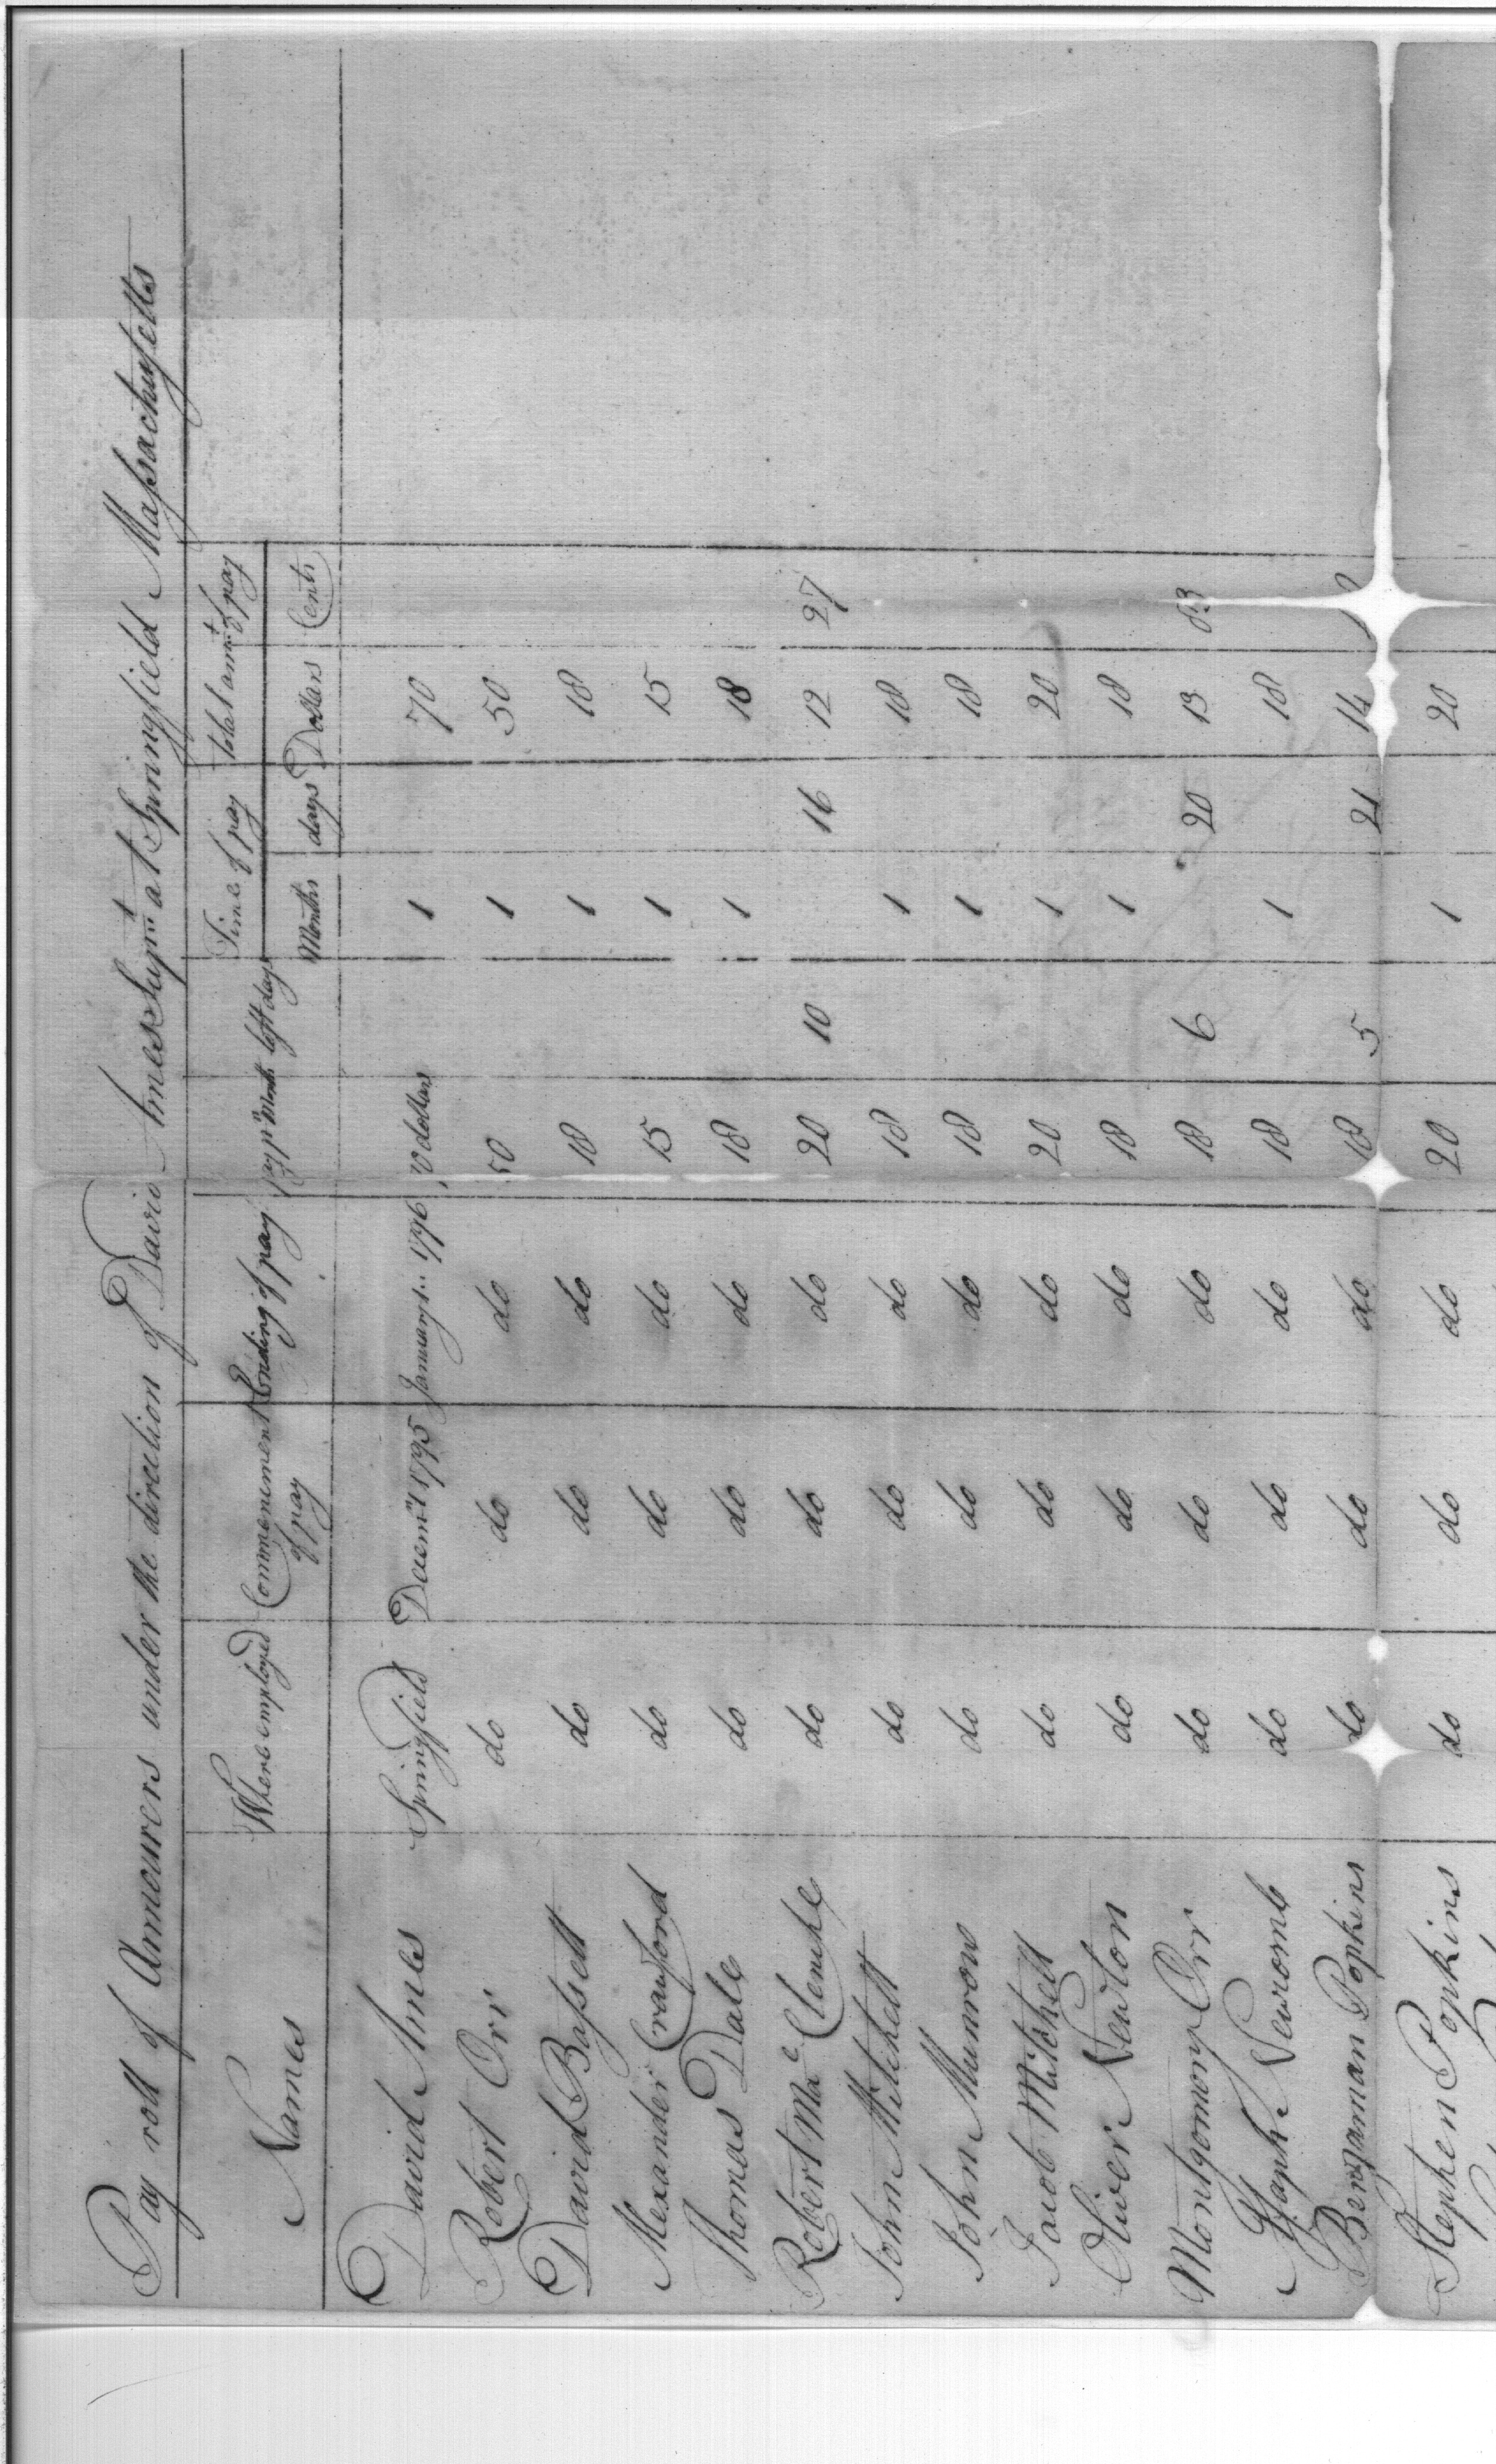 Pay roll of Armourers under the direction of David Ames Supm.t at Springfield Massachusetts
Names Where employed Commencement of pay Ending of pay Pay pr Month left days Time of pay Total amt. of pay
Months days Dollars Cents
David Ames Springfield Decemr 1 1795 January 1.. 1796 70 dollars 1 70
Robert Orr do do do 50 1 50
David Bassett do do do 18 1 18
Alexander Crawford do do do 15 1 15
Thomas Dale do do do 18 1 18
Robert Mac Clenche do do do 20 10 16 12 27
John Mitchell do do do 18 1 18
John Munrow do do do 18 1 18
Jacob Mitchell do do do 20 1 20
Oliver Newton do do do 18 1 18
Montgomory Orr do do do 18 6 20 13 83
Newcomb do do do 18 1 18
Benjaman Popkins do do do 18 5 21 14
Stephen Popkins do do do 20 1 20